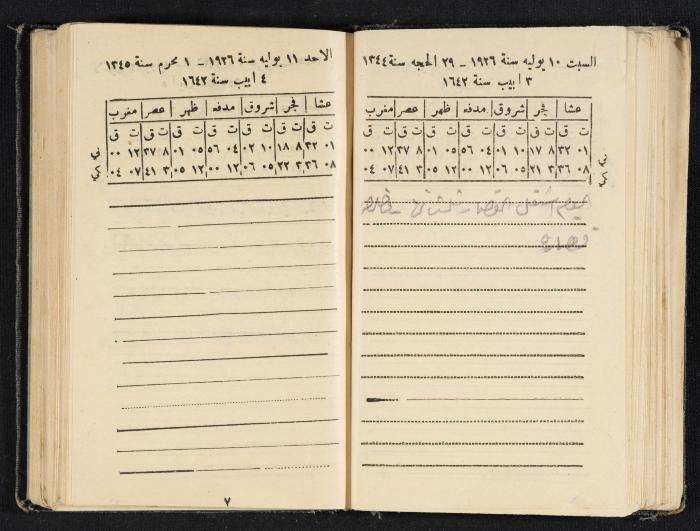 السبت ١٠ يوليه سنة ١٩٢٦ – ٢٩ الحجه سنة ١٣٤٤
٣ ابيب سنة ١٦٤٢
عشا فجر شروق مدفه ظهر عصر مغرب
ت ق ت ق ت ق ت ق ت ق ت ق ت ق
٠١ ٣٢ ٨ ١٧ ١٠ ٠١ ٠٤ ٥٦ ٠٥ ٠١ ٨ ٣٧ ١٢ ٠٠
٠٨ ٣٦ ٣ ٢١ ٠٥ ٠٦ ١٢ ٠٠ ١٢ ٠٥ ٣ ٤١ ٠٧ ٠٤
اليوم
الاحد ١١ يوليه سنة ١٩٢٦ – ١ محرم سنة ١٣٤٥
٤ ابيب سنة ١٦٤٢
عشا فجر شروق مدفه ظهر عصر مغرب
ت ق ت ق ت ق ت ق ت ق ت ق ت ق
٠١ ٣٢ ٨ ١٨ ١٠ ٠٢ ٠٤ ٥٦ ٠٥ ٠١ ٨ ٣٧ ١٢ ٠٠
٠٨ ٣٦ ٣ ٢٢ ٠٥ ٠٦ ١٢ ٠٠ ١٢ ٠٥ ٣ ٤١ ٠٧ ٠٤
٧